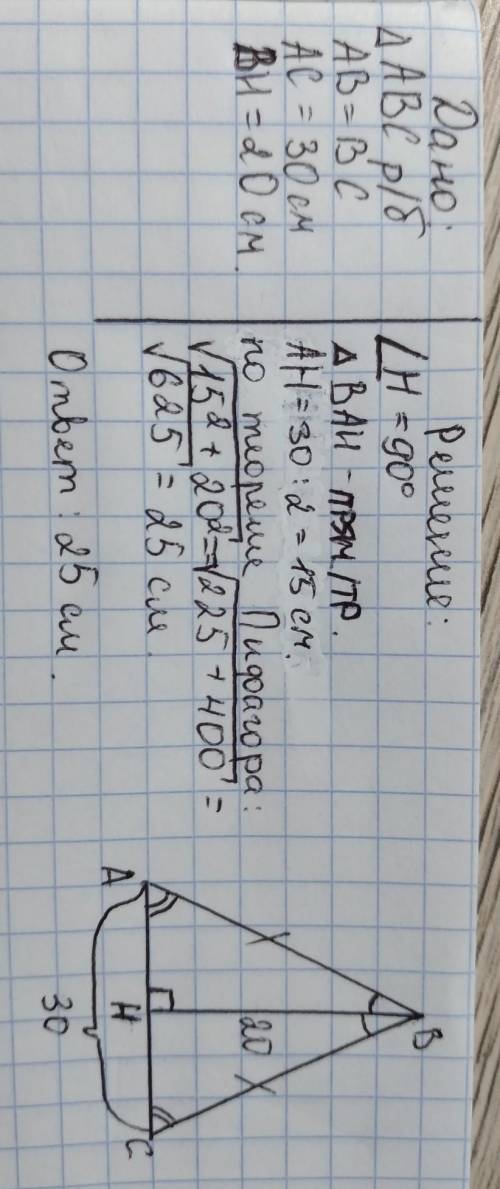 Дано:
Δ ABC р/б
AB = BC
AC = 30 см
BH = 20 см.
Решение:
∠H = 90°
Δ BAH - прям/тр.
AH = 30 : 2 = 15 см.
по теореме Пифагора:
√15² + 20² = √225 + 400 =
√625 = 25 см.
Ответ: 25 см.
B
20
A
H
C
30